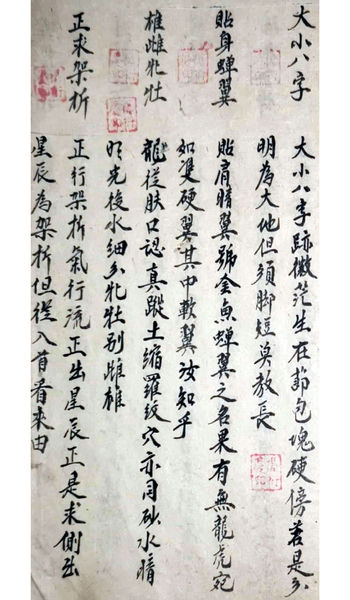 大小八字
大小八字跡微茫生在節包塊硬傍若是分
明為大地但須脚短莫教長
貼身蟬翼
貼肩暗翼號金魚蟬翼之名果有無龍虎宛
如雙硬翼其中軟翼汝知乎
雄雌牝牡
龍從肤口認真蹤土縮羅紋穴亦同砂水暗
明先後水細分牝牡別雌雄
正求架折
正行架折氣行流正出星辰正是求側出
星辰為架折但從入首看來由